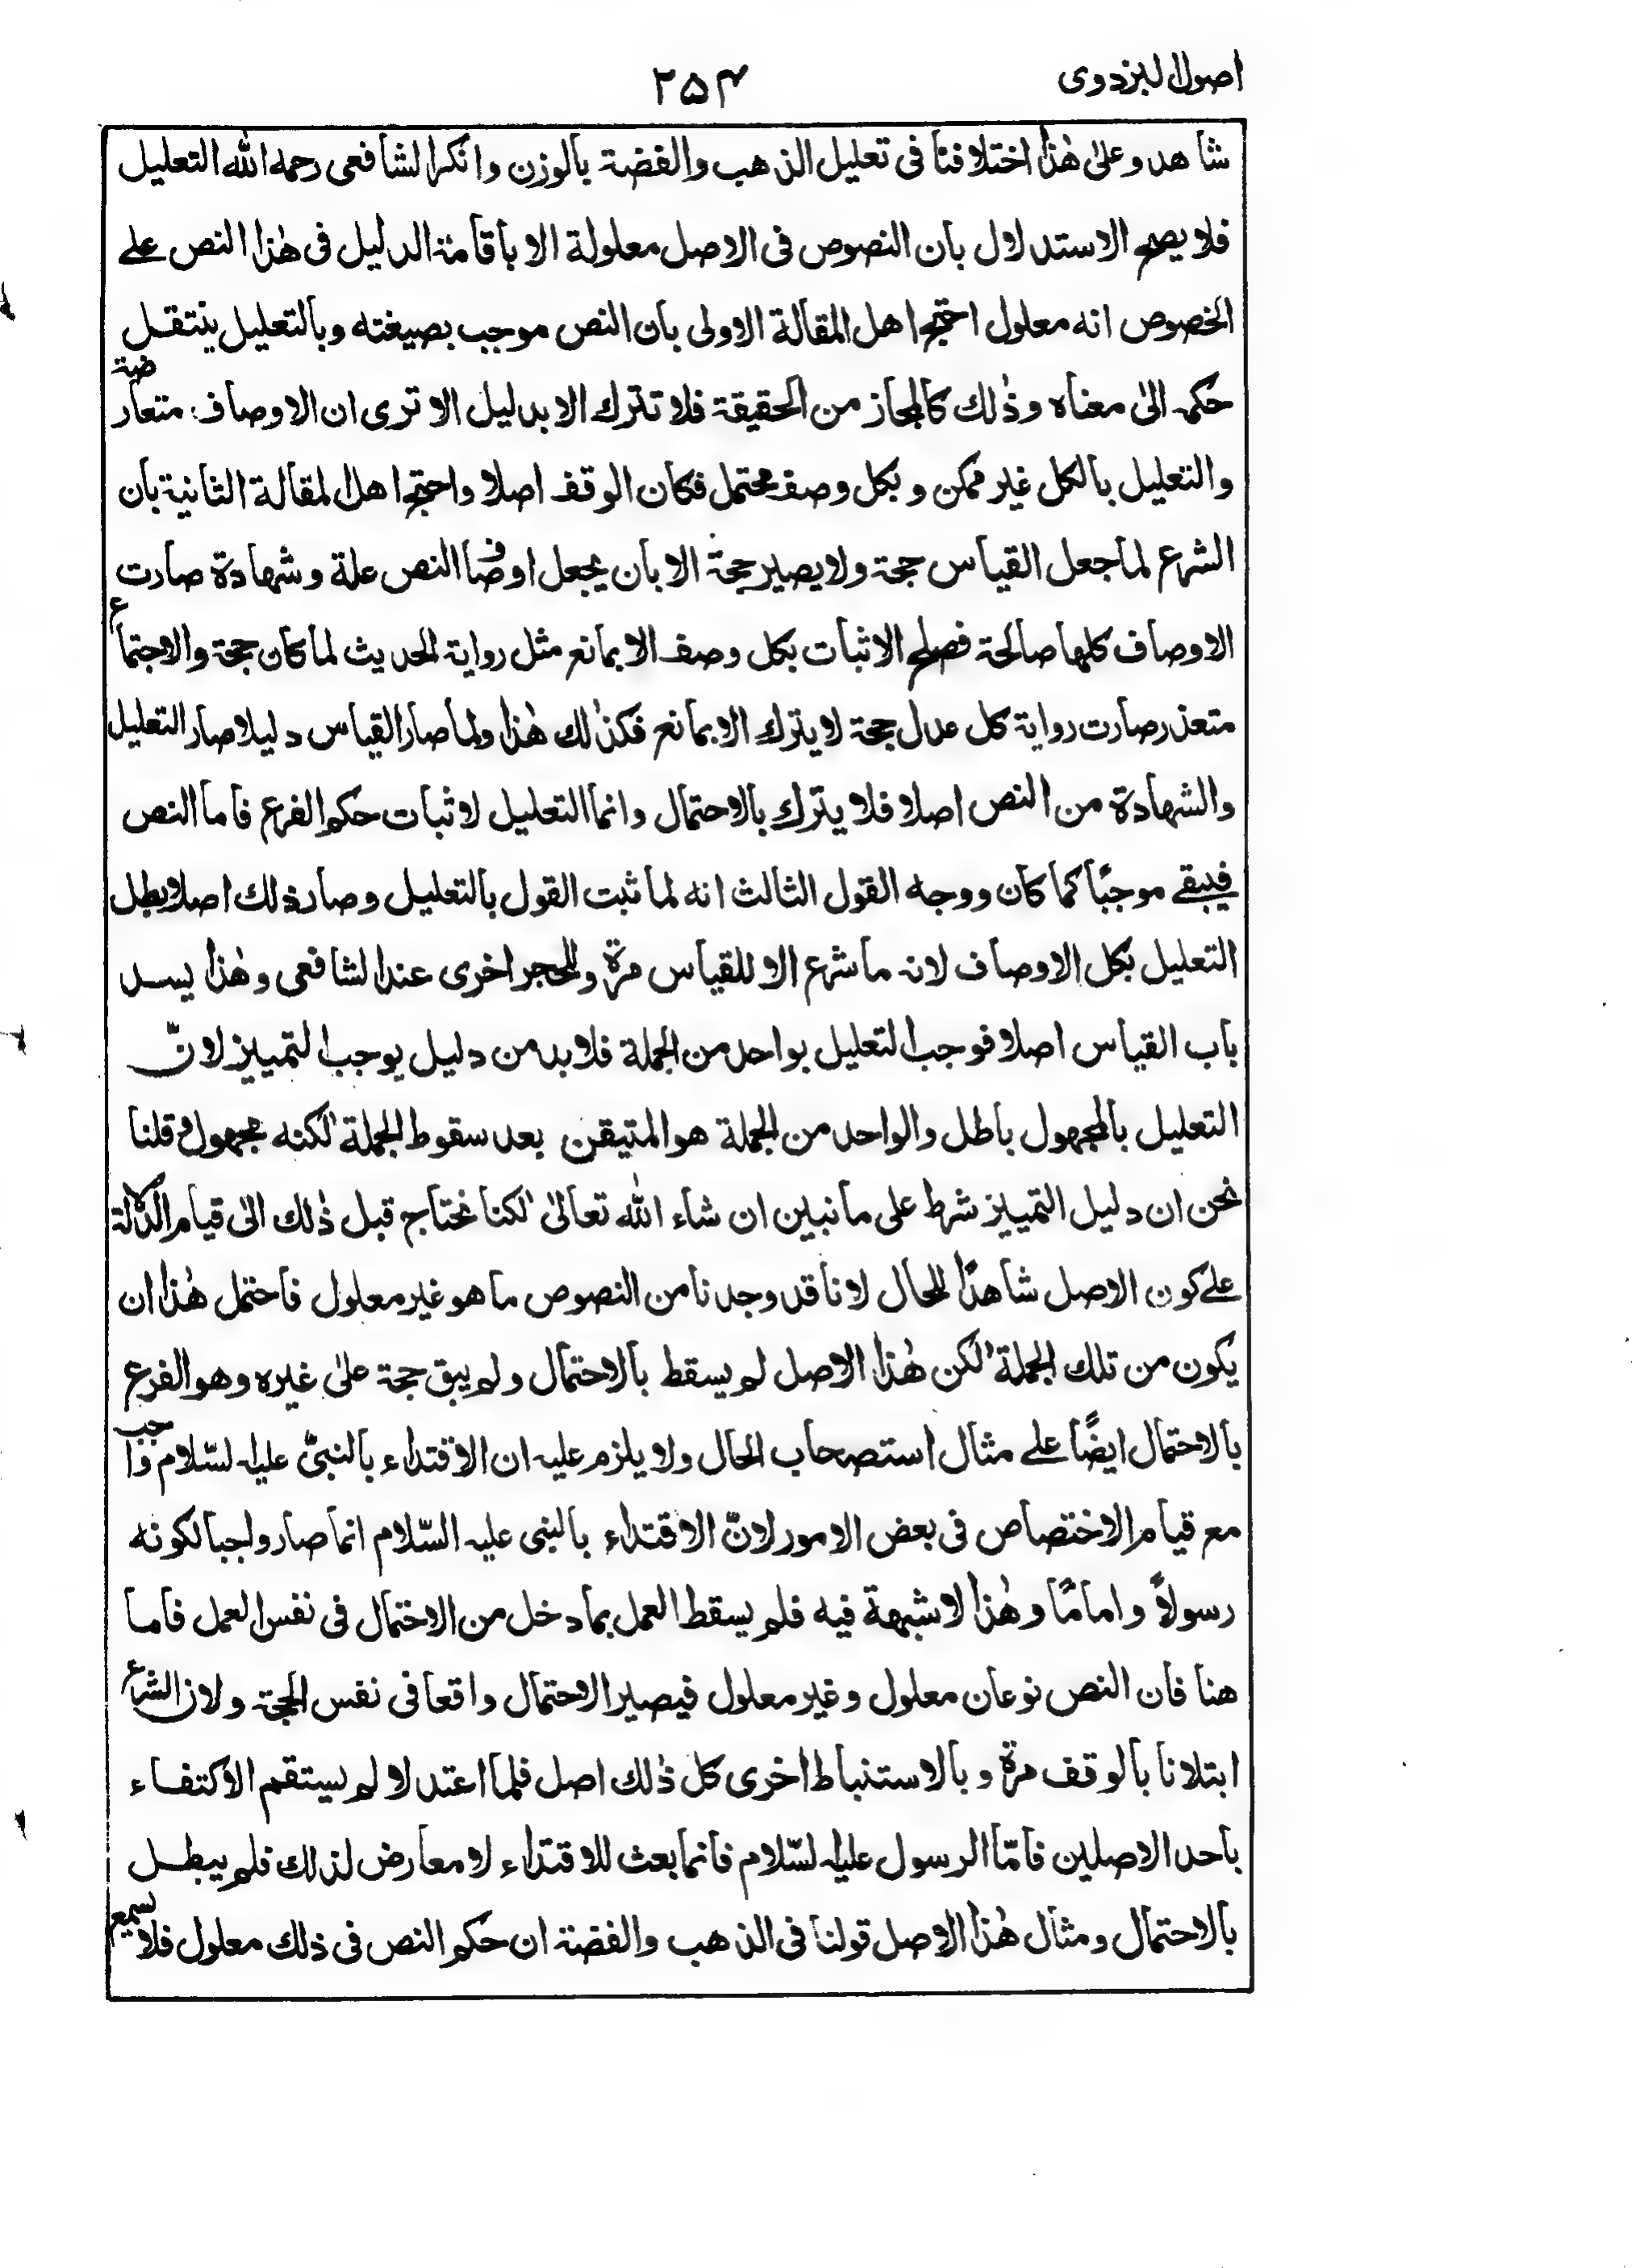 اصول البزدوی
۲۵۴
شاهد وعلیٰ هٰذا اختلافنا فی تعلیل الذهب والفضۃ بالوزن وانکر الشافعی رحمہ اللہ التعلیل
فلا یصح الاستدلال بان النصوص فی الاصل معلولة الا باقامۃ الدلیل فی هٰذا النص علے
الخصوص انه معلول احتج اهل المقالة الاولی بان النص موجب بصیغته وبالتعلیل ینتقل
حکمہ الیٰ معناه وذٰلك کالمجاز من الحقیقۃ فلا تترك الا بدلیل الا تری ان الاوصاف متعارضۃ
والتعلیل بالکل غیر ممکن وبکل وصف محتمل فکان الوقف اصلا واحتج اهل المقالة الثانیۃ بان
الشرع لما جعل القیاس حجۃ ولا یصیر حجۃ الا بان یجعل اوصاف النص علة وشهادة صارت
الاوصاف کلها صالحۃ فصلح الاثبات بکل وصف الا بمانع مثل روایۃ الحدیث لما کان حجۃ والاجتماع
متعذر صارت روایۃ کل عدل حجۃ لا یترك الا بمانع فکذٰلك هٰذا ولما صار القیاس دلیلا صار التعلیل
والشهادة من النص اصلا فلا یترك بالاحتمال وانما التعلیل لاثبات حکم الفرع فاما النص
فیبقے موجبًا کما کان ووجه القول الثالث انه لما ثبت القول بالتعلیل وصار ذلك اصلا بطل
التعلیل بکل الاوصاف لانہ ما شرع الا للقیاس مرة وللحجر اخری عند الشافعی وهٰذا یسد
باب القیاس اصلا فوجب التعلیل بواحد من الجملة فلا بد من دلیل یوجب التمییز لانّ
التعلیل بالمجهول باطل والواحد من الجملة هو المتیقن بعد سقوط الجملة لٰکنه مجهول وقلنا
نحن ان دلیل التمییز شرط علی ما نبین ان شاء اللہ تعالیٰ لٰکنا نحتاج قبل ذٰلك الیٰ قیام الدلالة
علے کون الاصل شاهدًا للحال لانا قد وجدنا من النصوص ما هو غیر معلول فاحتمل هٰذا ان
یکون من تلك الجملة لٰکن هٰذا الاصل لم یسقط بالاحتمال ولم یبق حجۃ علیٰ غیره وهو الفرع
بالاحتمال ایضًا علے مثال استصحاب الحال ولا یلزم علیہ ان الاقتداء بالنبیّ علیہ السّلام واجب
مع قیام الاختصاص فی بعض الامور لانّ الاقتداء بالنبی علیہ السّلام انما صار واجبا لکونه
رسولاً واماماً وهٰذا لا شبهة فیه فلم یسقط العمل بما دخل من الاحتمال فی نفس العمل فاما
هنا فان النص نوعان معلول وغیر معلول فیصیر الاحتمال واقعا فی نفس الحجۃ ولان الشرع
ابتلانا بالوقف مرة وبالاستنباط اخری کل ذٰلك اصل فلما اعتدلا لم یستقم الاکتفاء
باحد الاصلین فامّا الرسول علیہ السّلام فانما بعث للاقتداء لا معارض لذلك فلم یبطل
بالاحتمال ومثال هٰذا الاصل قولنا فی الذهب والفضۃ ان حکم النص فی ذلك معلول فلا یسمع